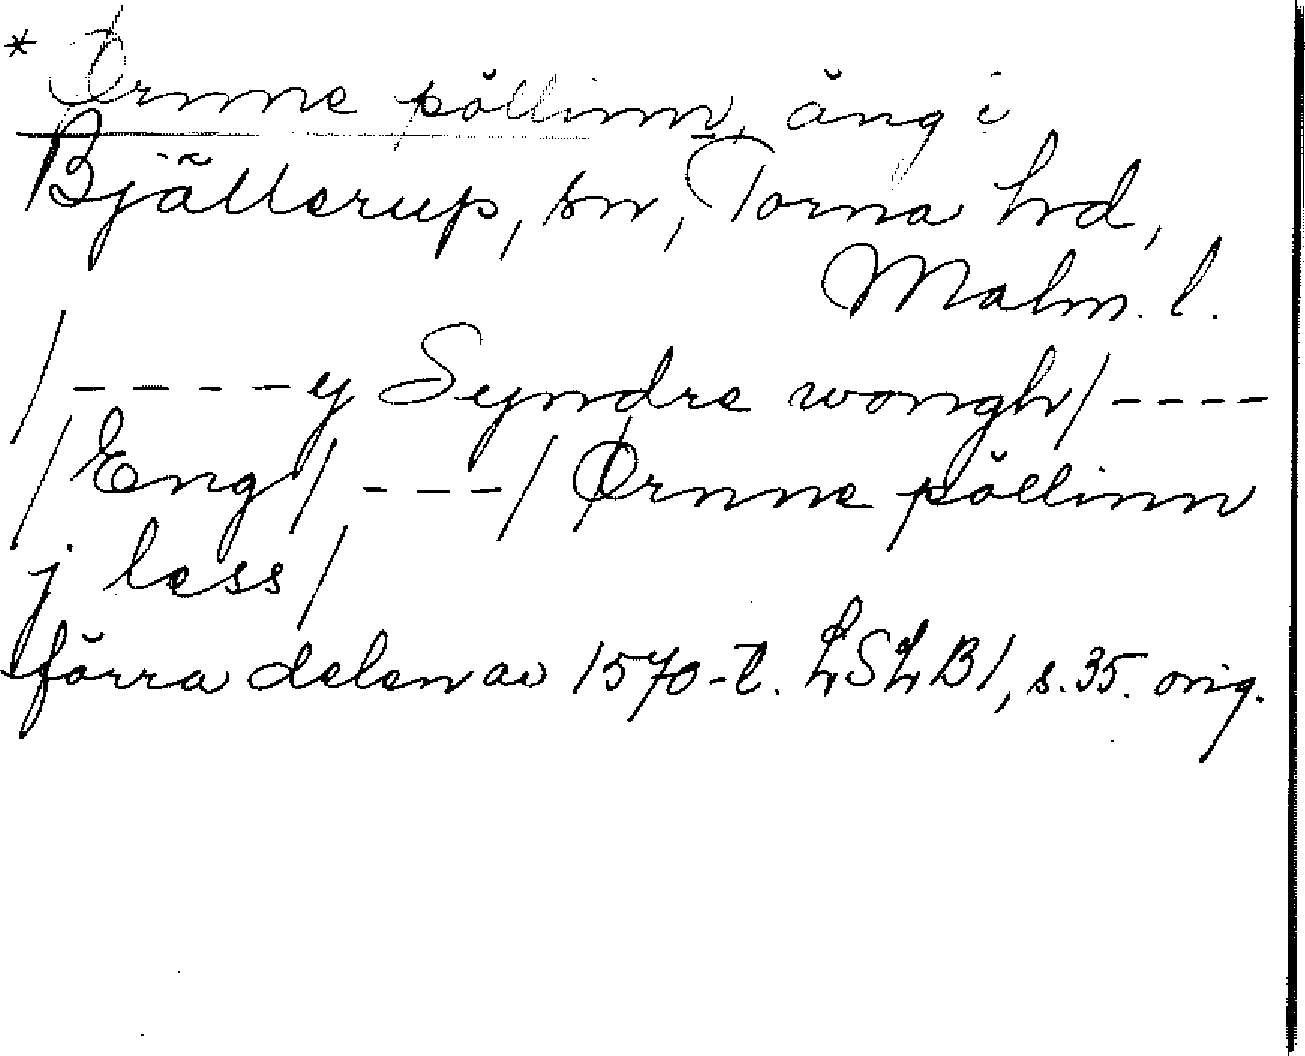 * Ørnne pöllinn, äng i
Bjällerup, sn, Torna hd,
Malm. l.
/- - - - y Syndre wongh/ - - - -
/Eng/ - - -/ Ørnne pöllinn
j less/
förra delen av 1570-t. LSLB1, s. 35. orig.